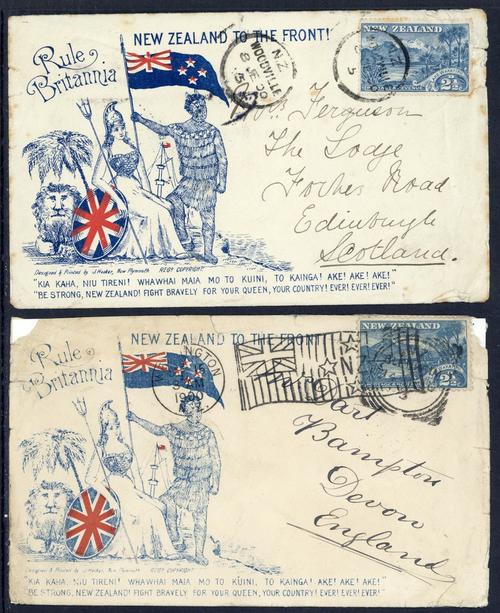 NEW ZEALAND TO THE FRONT!
Rule
Britannia
N.Z.
WOODVILLE
NEW ZEALAND
2½
Ferguson
The Lodge
Forbes Road
Edinburgh
Scotland.
Designed & Printed by J. Hooker, New Plymouth REGD COPYRIGHT
"KIA KAHA, NIU TIRENI! WHAWHAI MAIA MO TO KUINI, TO KAINGA! AKE! AKE! AKE!"
"BE STRONG, NEW ZEALAND! FIGHT BRAVELY FOR YOUR QUEEN, YOUR COUNTRY! EVER! EVER! EVER!"
NEW ZEALAND TO THE FRONT!
Rule
Britannia
1900
N.Z.
NZ
NEW ZEALAND
2½
Bampton
Devon
England
Designed & Printed by J. Hooker, New Plymouth REGD COPYRIGHT
"KIA KAHA, NIU TIRENI! WHAWHAI MAIA MO TO KUINI, TO KAINGA! AKE! AKE! AKE!"
"BE STRONG, NEW ZEALAND! FIGHT BRAVELY FOR YOUR QUEEN, YOUR COUNTRY! EVER! EVER! EVER!"